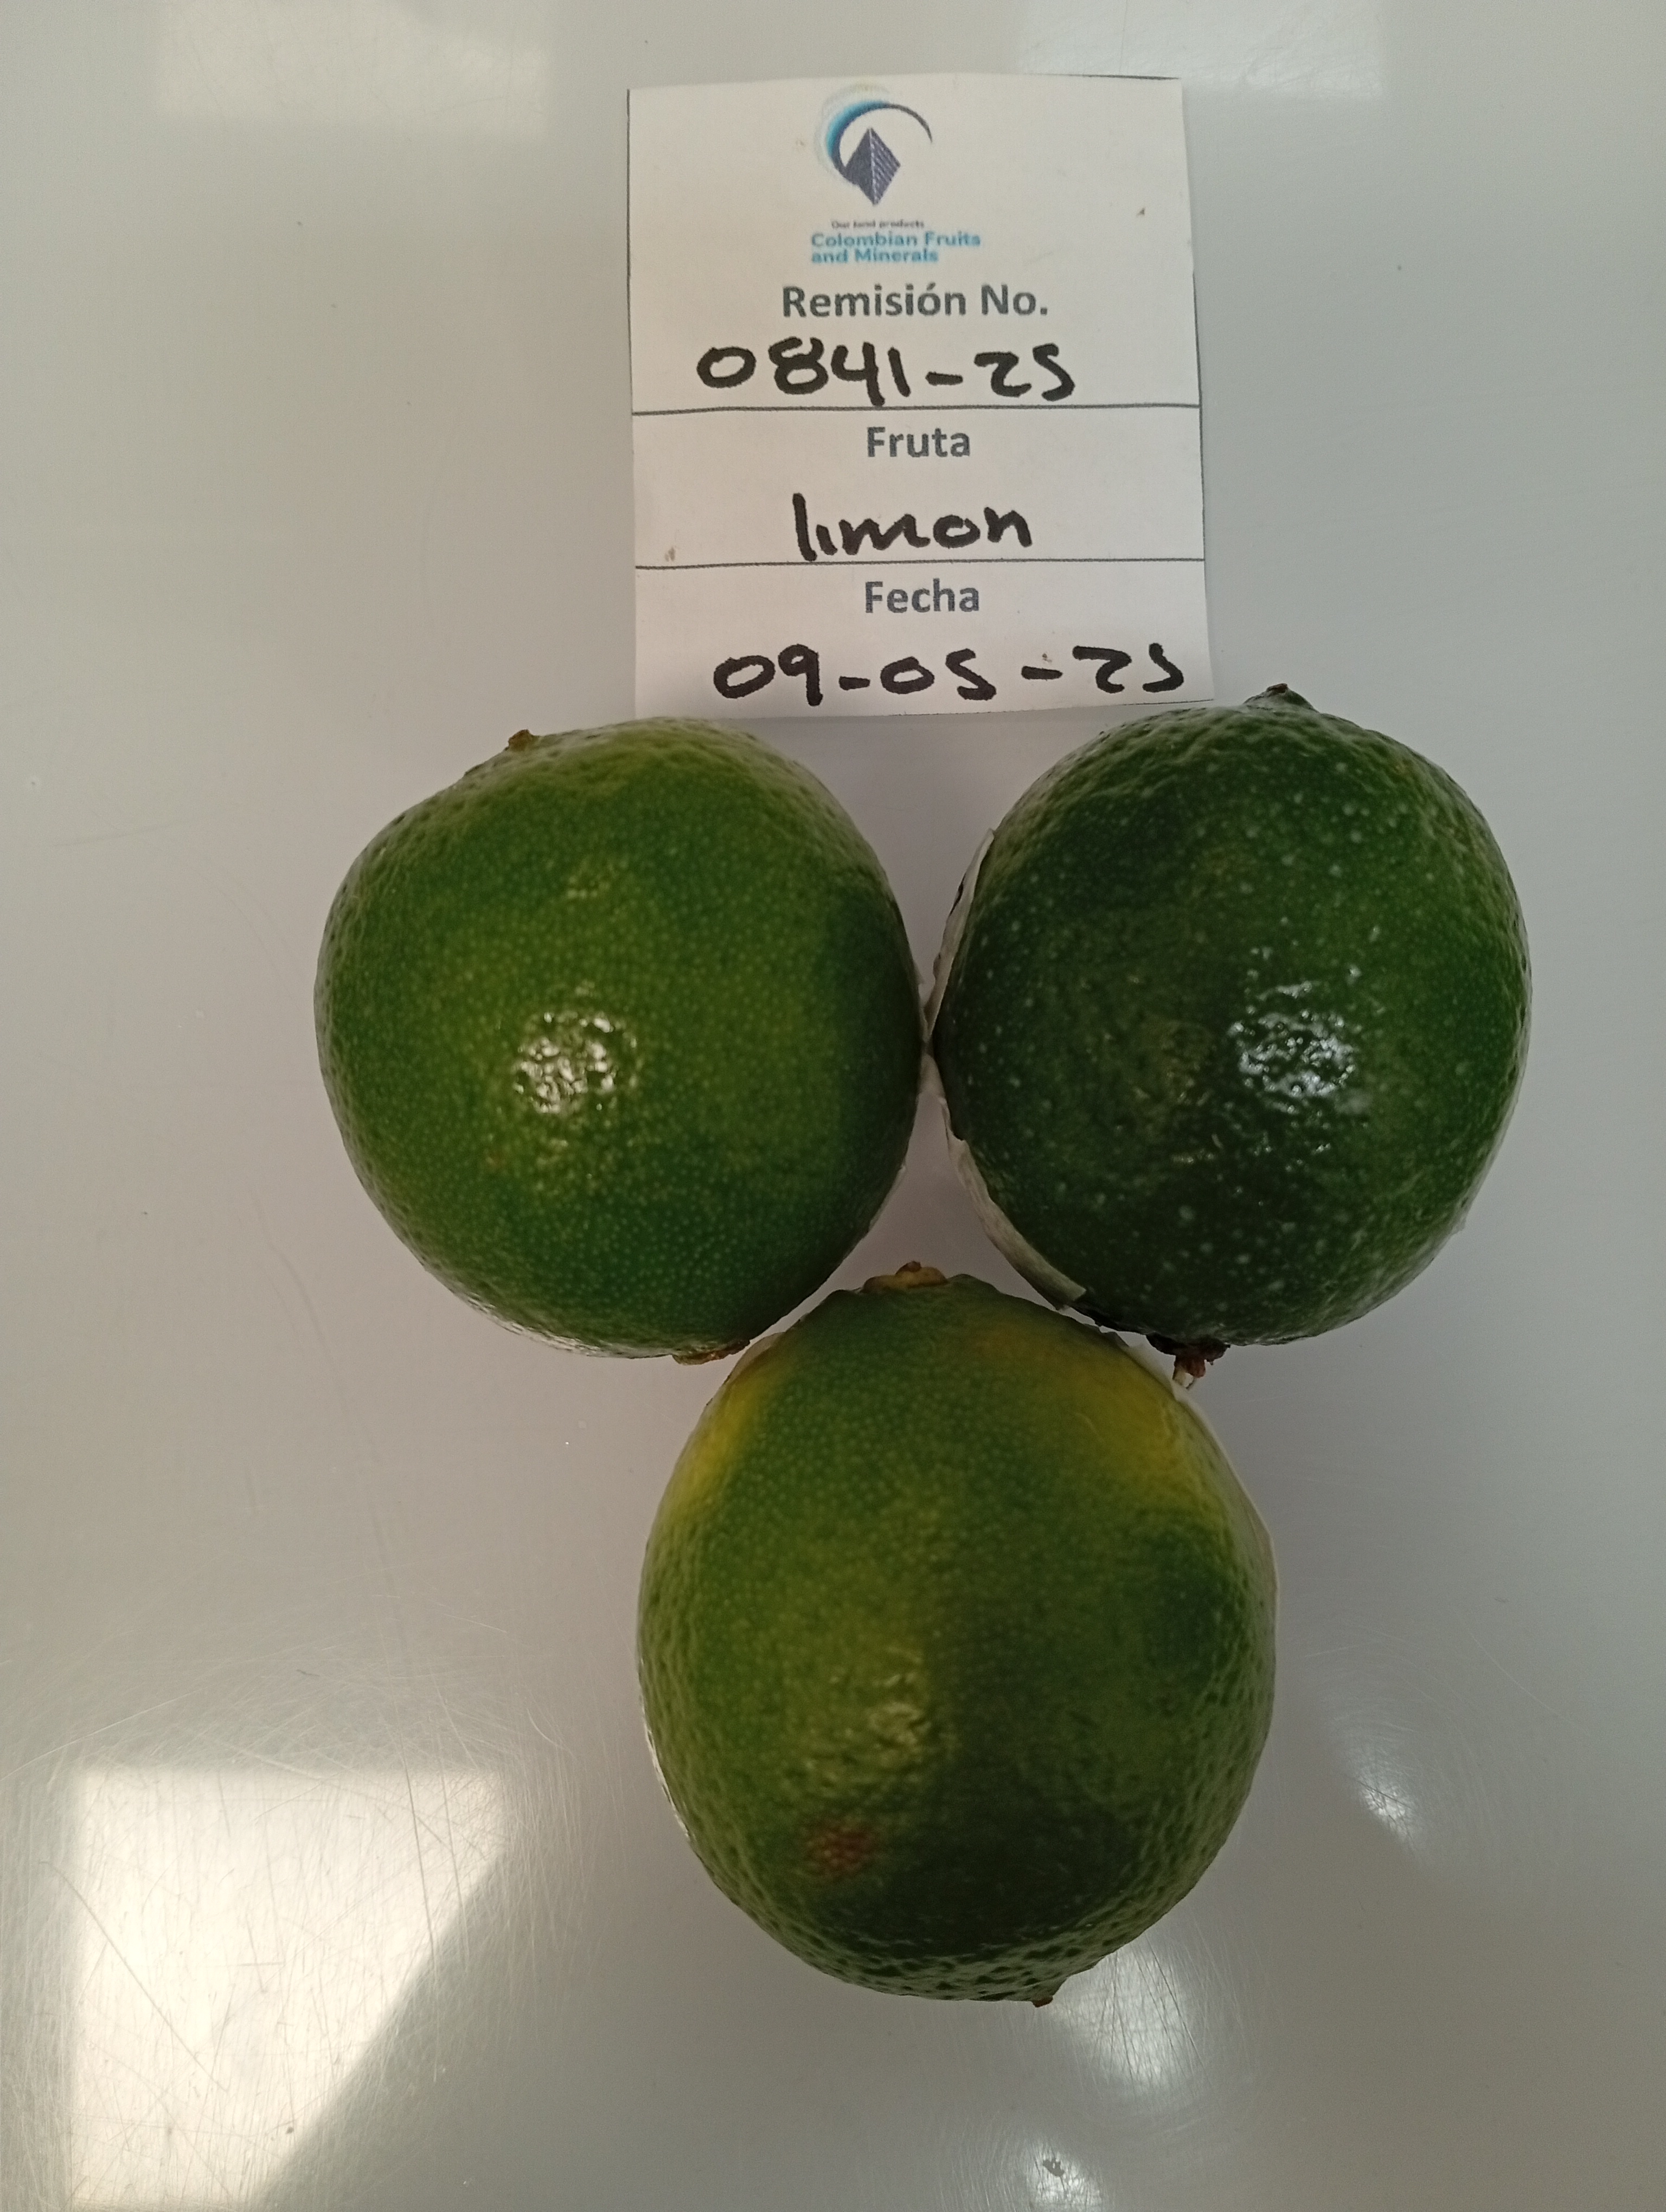 Our land products
Colombian Fruits
and Minerals
Remisión No.
0841-25
Fruta
limon
Fecha
09-05-25